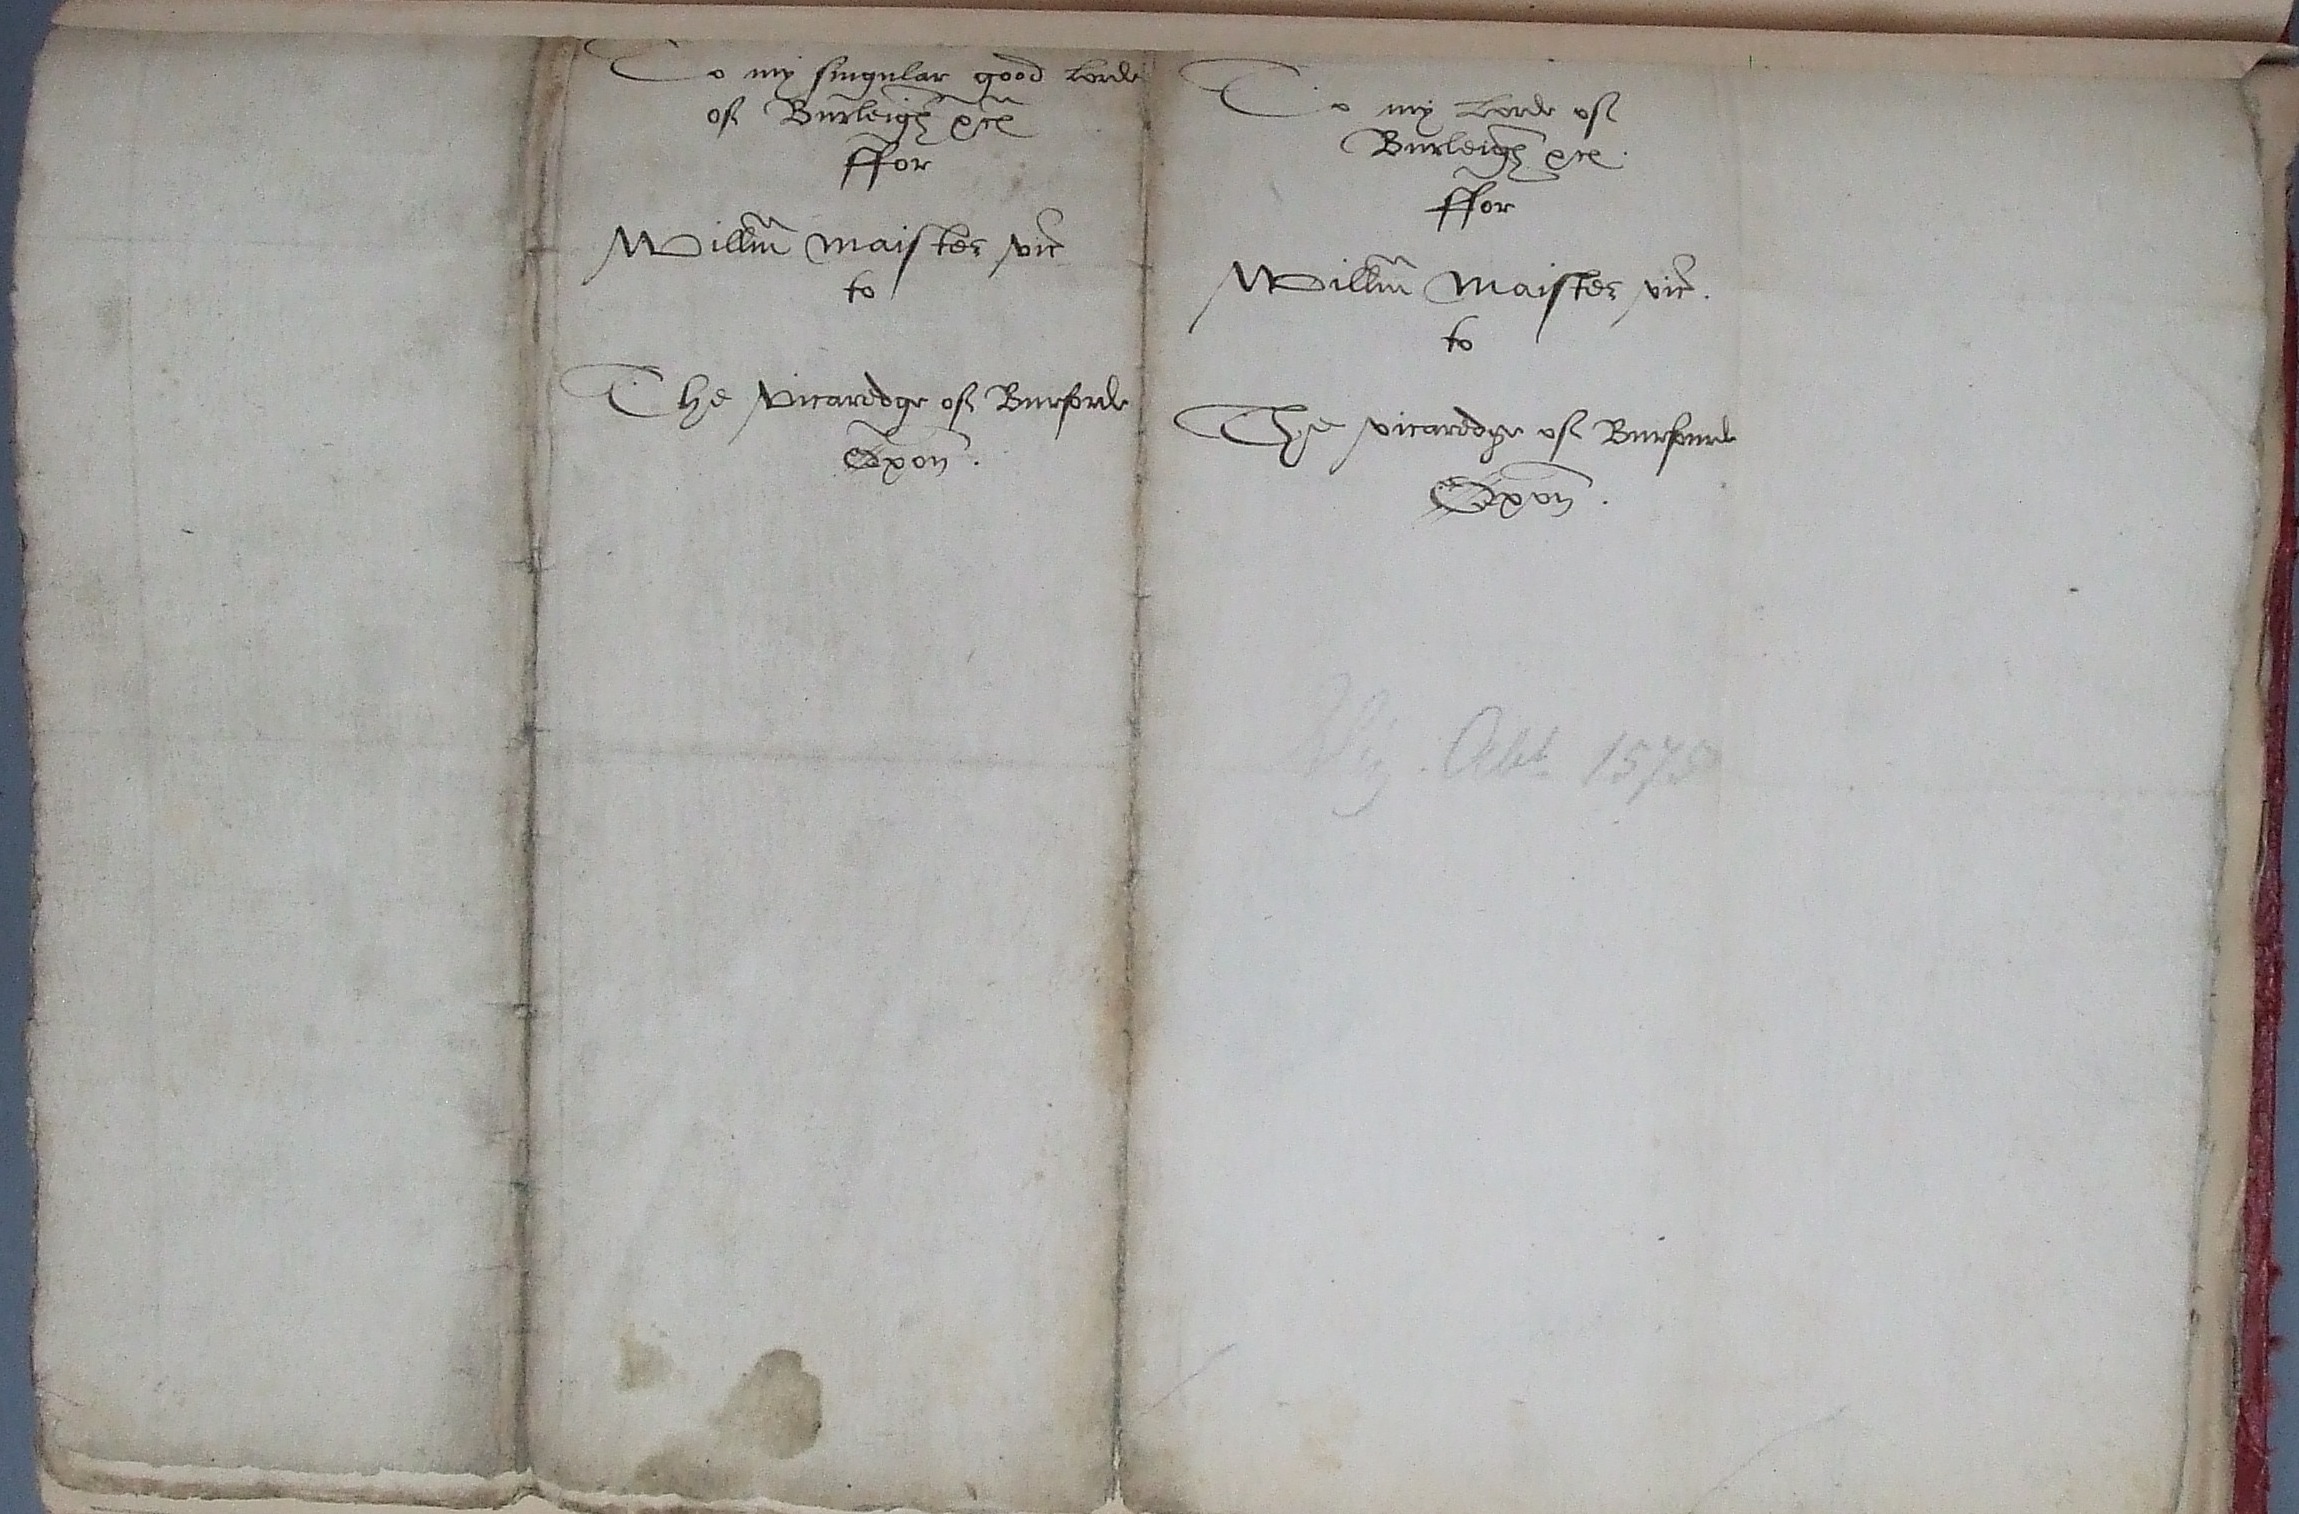 To my singular good Lorde
of Burleigh &c
ffor
Willm Maister vic
to
The vicaredge of Burforde
Oxon.
To my Lorde of
Burleigh &c.
ffor
Willm Maister vic.
to
The vicaredge of Burfourde
Oxon.
1575